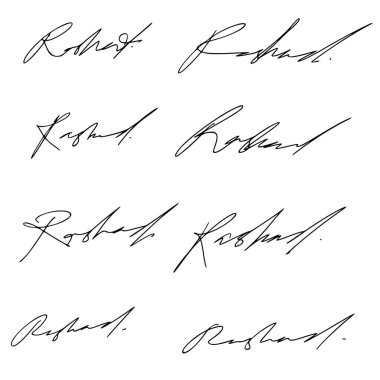 Rashad. Rashad.
Rashad. Rashad
Rashad. Rashad.
Rashad. Rashad.